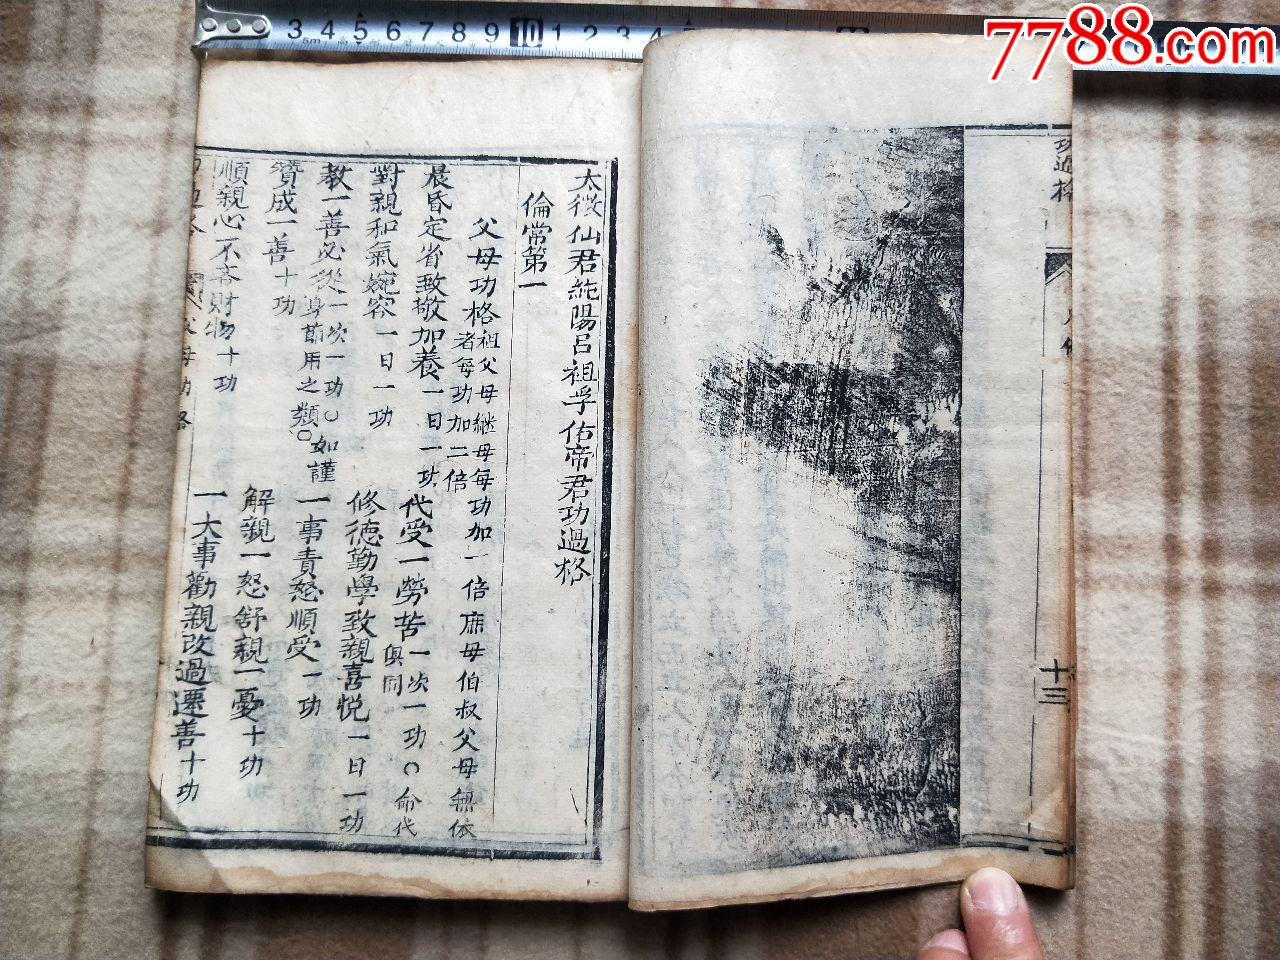 7788.com
3 4 5 6 7 8 9 10 1 2 3 4
功過格
十三
太微仙君純陽呂祖孚佑帝君功過格
倫常第一
父母功格祖父母繼母每功加一倍庶母伯叔父母無依
者每功加二倍
晨昏定省致敬加養一日一功
代受一勞苦一次一功○命代
與同
對親和氣婉容一日一功
修德勤學致親喜悅一日一功
教一善必從一次一功○如謹
身節用之類○
一事責怒順受一功
贊成一善十功
解親一怒舒親一憂十功
順親心不吝財物十功
一大事勸親改過遷善十功
父母功格